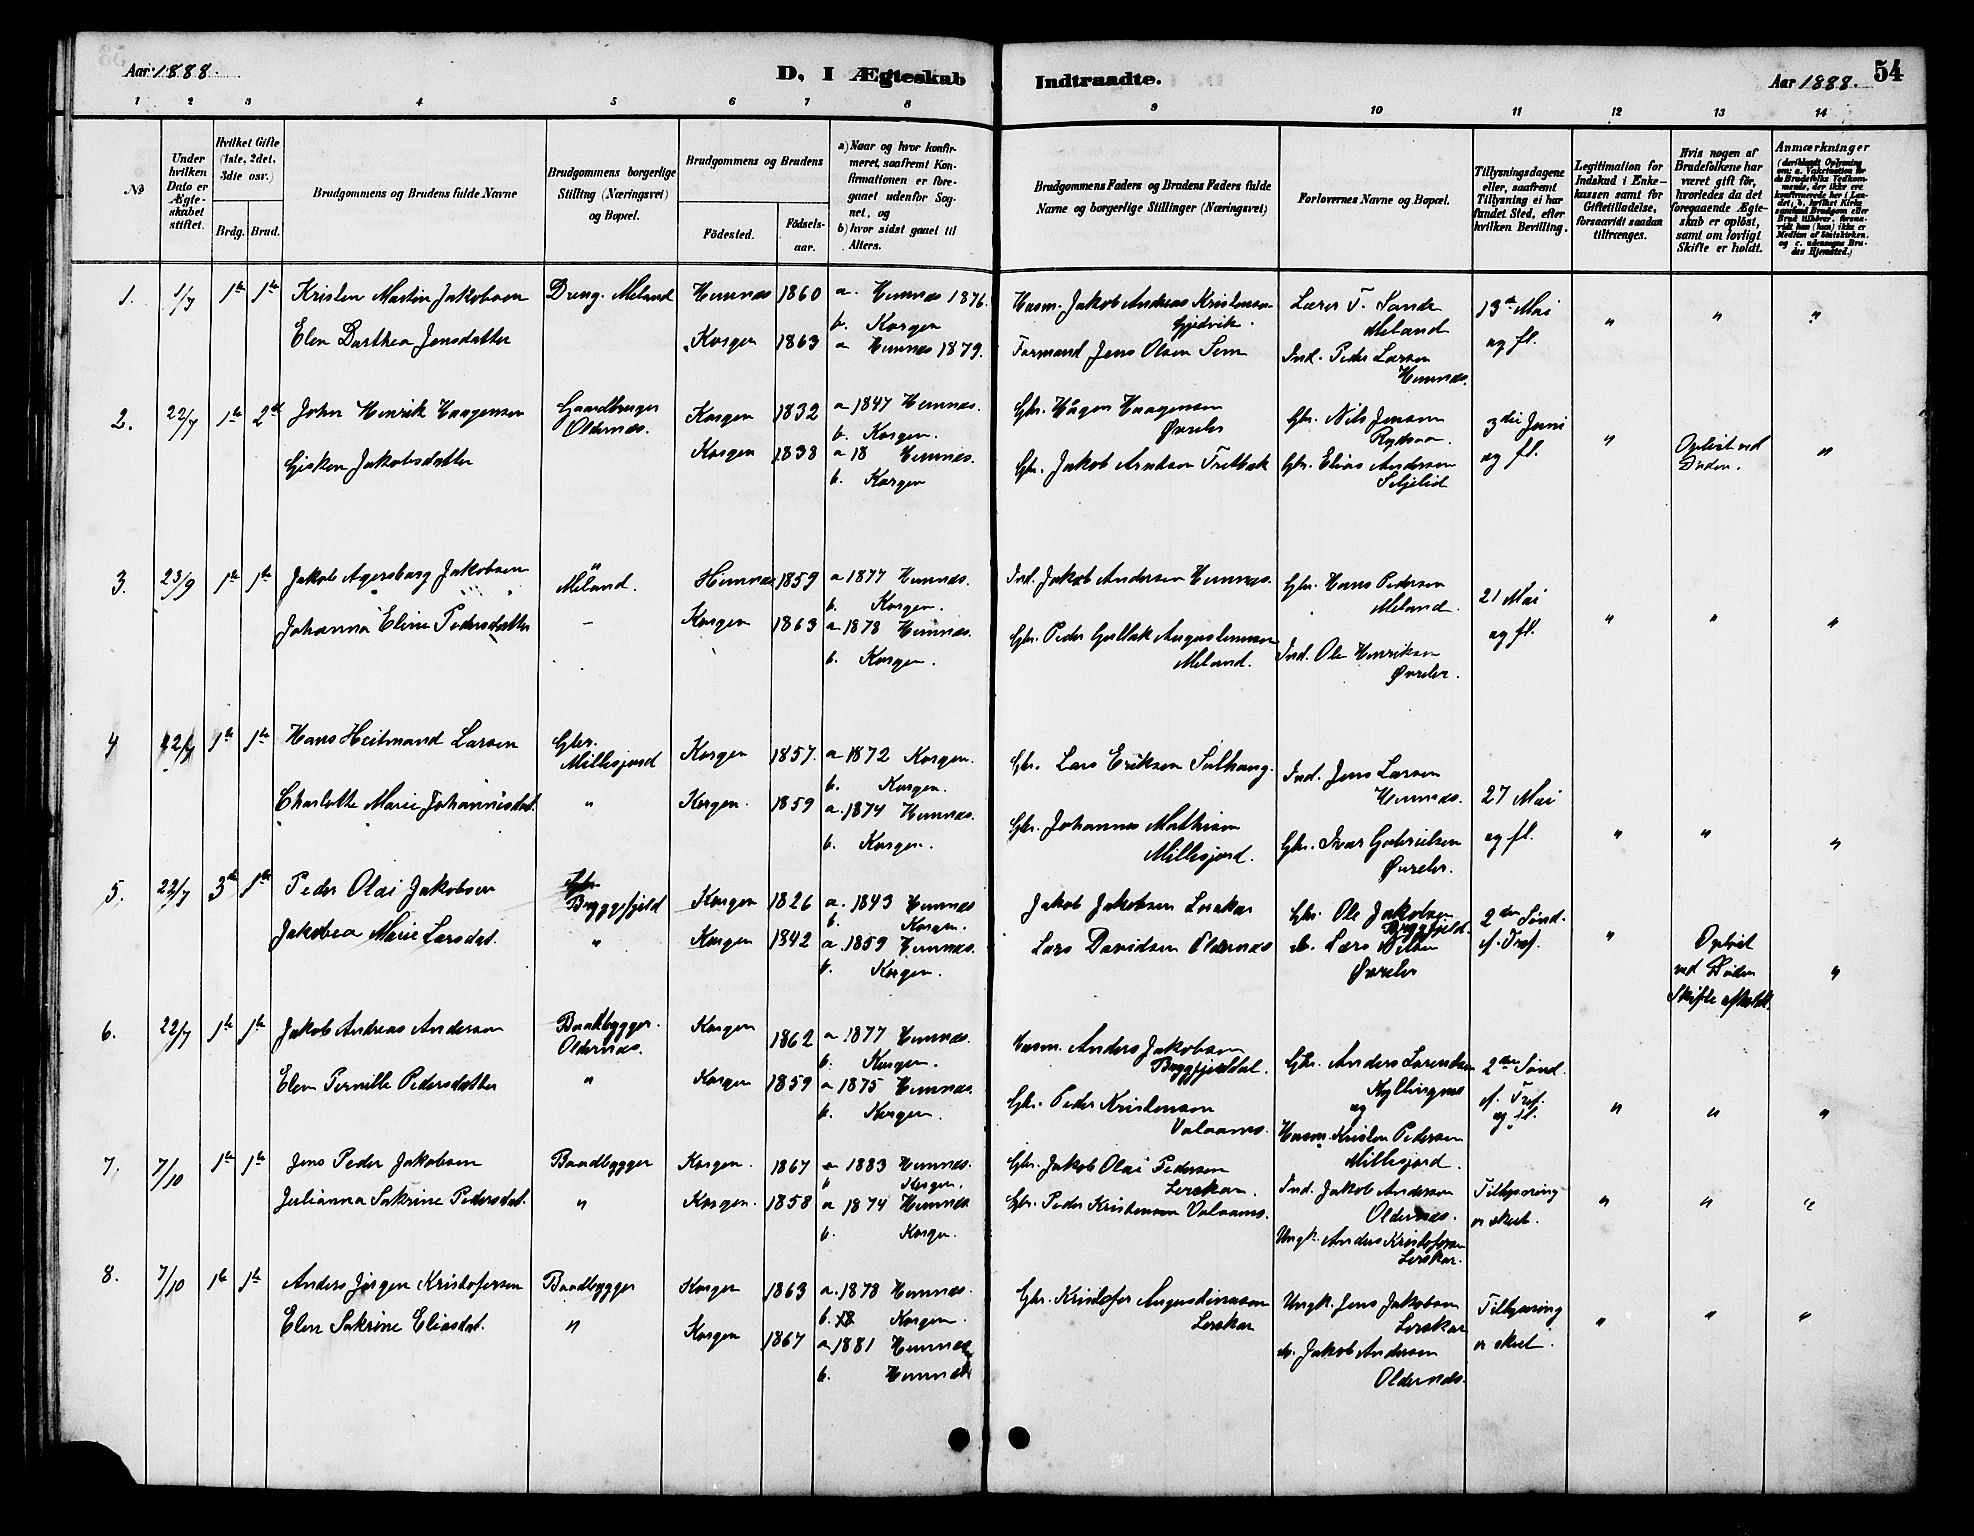 Aar 1888.
D, I Ægteskab
Indtraadte.
Aar 1888.
54
1 2 3 4 5 6 7 8 9 10 11 12 13 14
№
Under hvilken Dato er Ægteskabet stiftet.
Hvilket Gifte (1ste, 2det, 3die osv.)
Brdg. Brud.
Brudgommens og Brudens fulde Navne
Brudgommens borgerlige Stilling (Næringsvei) og Bopæl.
Brudgommens og Brudens
Födested.
Födselsaar.
a) Naar og hvor konfirmeret, saafremt Konfirmationen er foregaaet udenfor Sognet, og
b) hvor sidst gaaet til Alters.
Brudgommens Faders og Brudens Faders fulde Navne og borgerlige Stillinger (Næringsvei)
Forlovernes Navne og Bopæl.
Tillysningsdagene eller, saafremt Tillysning ei har fundet Sted, efter hvilken Bevilling.
Legitimation for Indskud i Enkekassen samt for Giftetilladelse, forsaavidt saadan tiltrænges.
Hvis nogen af Brudefolkene har været gift för, hvorledes da det foregaaende Ægteskab er oplöst, samt om lovligt Skifte er holdt.
Anmærkninger
1. 1/7 1ste 1ste Kristen Martin Jakobsen Dreng. Meland Hemnæs 1860 a. Hemnæs 1876.
b. Korgen
Husm. Jakob Andreas Kristensen Gjedvik.
Lærer T. Sande Meland
13de Mai og fl. " " "
Elen Darthea Jensdatter Korgen 1863 a Hemnæs 1879.
Formand Jens Olsen Sem
Ind. Peder Larsen Hemnæs.
2. 22/7 1ste 2det John Henrik Haagensen Gaardbruger Oldernæs. Korgen 1832 a 1847 Hemnæs.
b. Korgen.
Gbr. Hågen Haagensen Øvreler
Gbr. Nils Jensen
3die Juni og fl. " Opløst ved Døden. "
Gisken Jakobsdatter Korgen 1838 a 18 Hemnæs.
b. Korgen
Gbr. Jakob Arntsen Tretbak
Gbr. Elias Andersen Seljelid
3. 23/9 1ste 1ste Jakob Agersborg Jakobsen " Meland. Hemnæs 1859 a 1877 Hemnæs.
b. Korgen.
Ind. Jakob Andersen Hemnæs.
Gbr. Hans Pedersen Meland.
21 Mai og fl. " " "
Johanna Eline Pedersdatter – Korgen 1863 a 1878 Hemnæs.
b. Korgen.
Gbr. Peder Gullak Augustinusen Meland.
Ind. Ole Henriksen Øvreler.
4 22/7 1ste 1ste Hans Heitmand Larsen Gbr. Millesjord Korgen 1857. a 1872 Korgen.
b. Korgen.
Gbr. Lars Eriksen
Ind. Jens Larsen Hemnæs.
27 Mai og fl. " " "
Charlotte Marie Johannesdat. " Korgen. 1859 a. 1874 Hemnæs.
b. Korgen.
Gbr. Johannes Mathisen Millesjord.
Gbr. Ivar Gabrielsen Øvreler.
5. 22/7 3die 1ste Peder Olai Jakobsen Gbr. Bryggfjeld Korgen 1826 a. 1843 Hemnæs
b. Korgen.
Jakob Jakobsen Leiskar
Gbr. Ole Jakobsen Bryggfjeld.
2den Sønd. e. Tref. " Opløst ved Døden Skifte afholdt. "
Jakobea Marie Larsdat. " Korgen 1842 a. 1859 Hemnæs.
b. Korgen.
Lars Davidsen Oldernæs
do. Lars Øvreler
6. 22/7 1ste 1ste Jakob Andreas Andersen Baadbygger. Oldernæs. Korgen 1862 a 1877 Hemnæs.
b. Korgen.
Husm. Anders Jakobsen Bryggfjelddal.
Gbr. Anders Lorentsen Kyllingmo og
2den Sønd. e. Tref. og fl. " " "
Elen Pernille Pedersdatter " Korgen 1859 a 1875 Hemnæs.
b. Korgen.
Gbr. Peder Kristensen Valaamo.
Husm. Kristen Pedersen Millesjord.
7. 7/10 1ste 1ste Jens Peder Jakobsen Baadbygger Korgen. 1867 a 1883 Hemnæs.
b Korgen.
Gbr. Jakob Olai Pedersen Leirskar.
Ind. Jakob Andersen Oldernæs.
Tillysning er skeet. " " "
Julianna Sakrine Pedersdat. " Korgen. 1858 a 1874 Hemnæs
b. Korgen.
Gbr. Peder Kristensen Valaamo.
Ungk. Anders Kristofersen Leirskar.
8. 7/10 1ste 1ste Anders Jørgen Kristofersen Baadbygger Korgen 1863 a. 1878 Hemnæs.
b. 18 Korgen.
Gbr. Kristofer Augustinusen Leirskar
Ungk. Jens Jakobsen Leirskar
Tillysning er skeet. " " "
Elen Sakrine Eliasdat. " Korgen 1867 a 1881 Hemnæs
b. Hemnæs
do. Jakob Andersen Oldernæs.